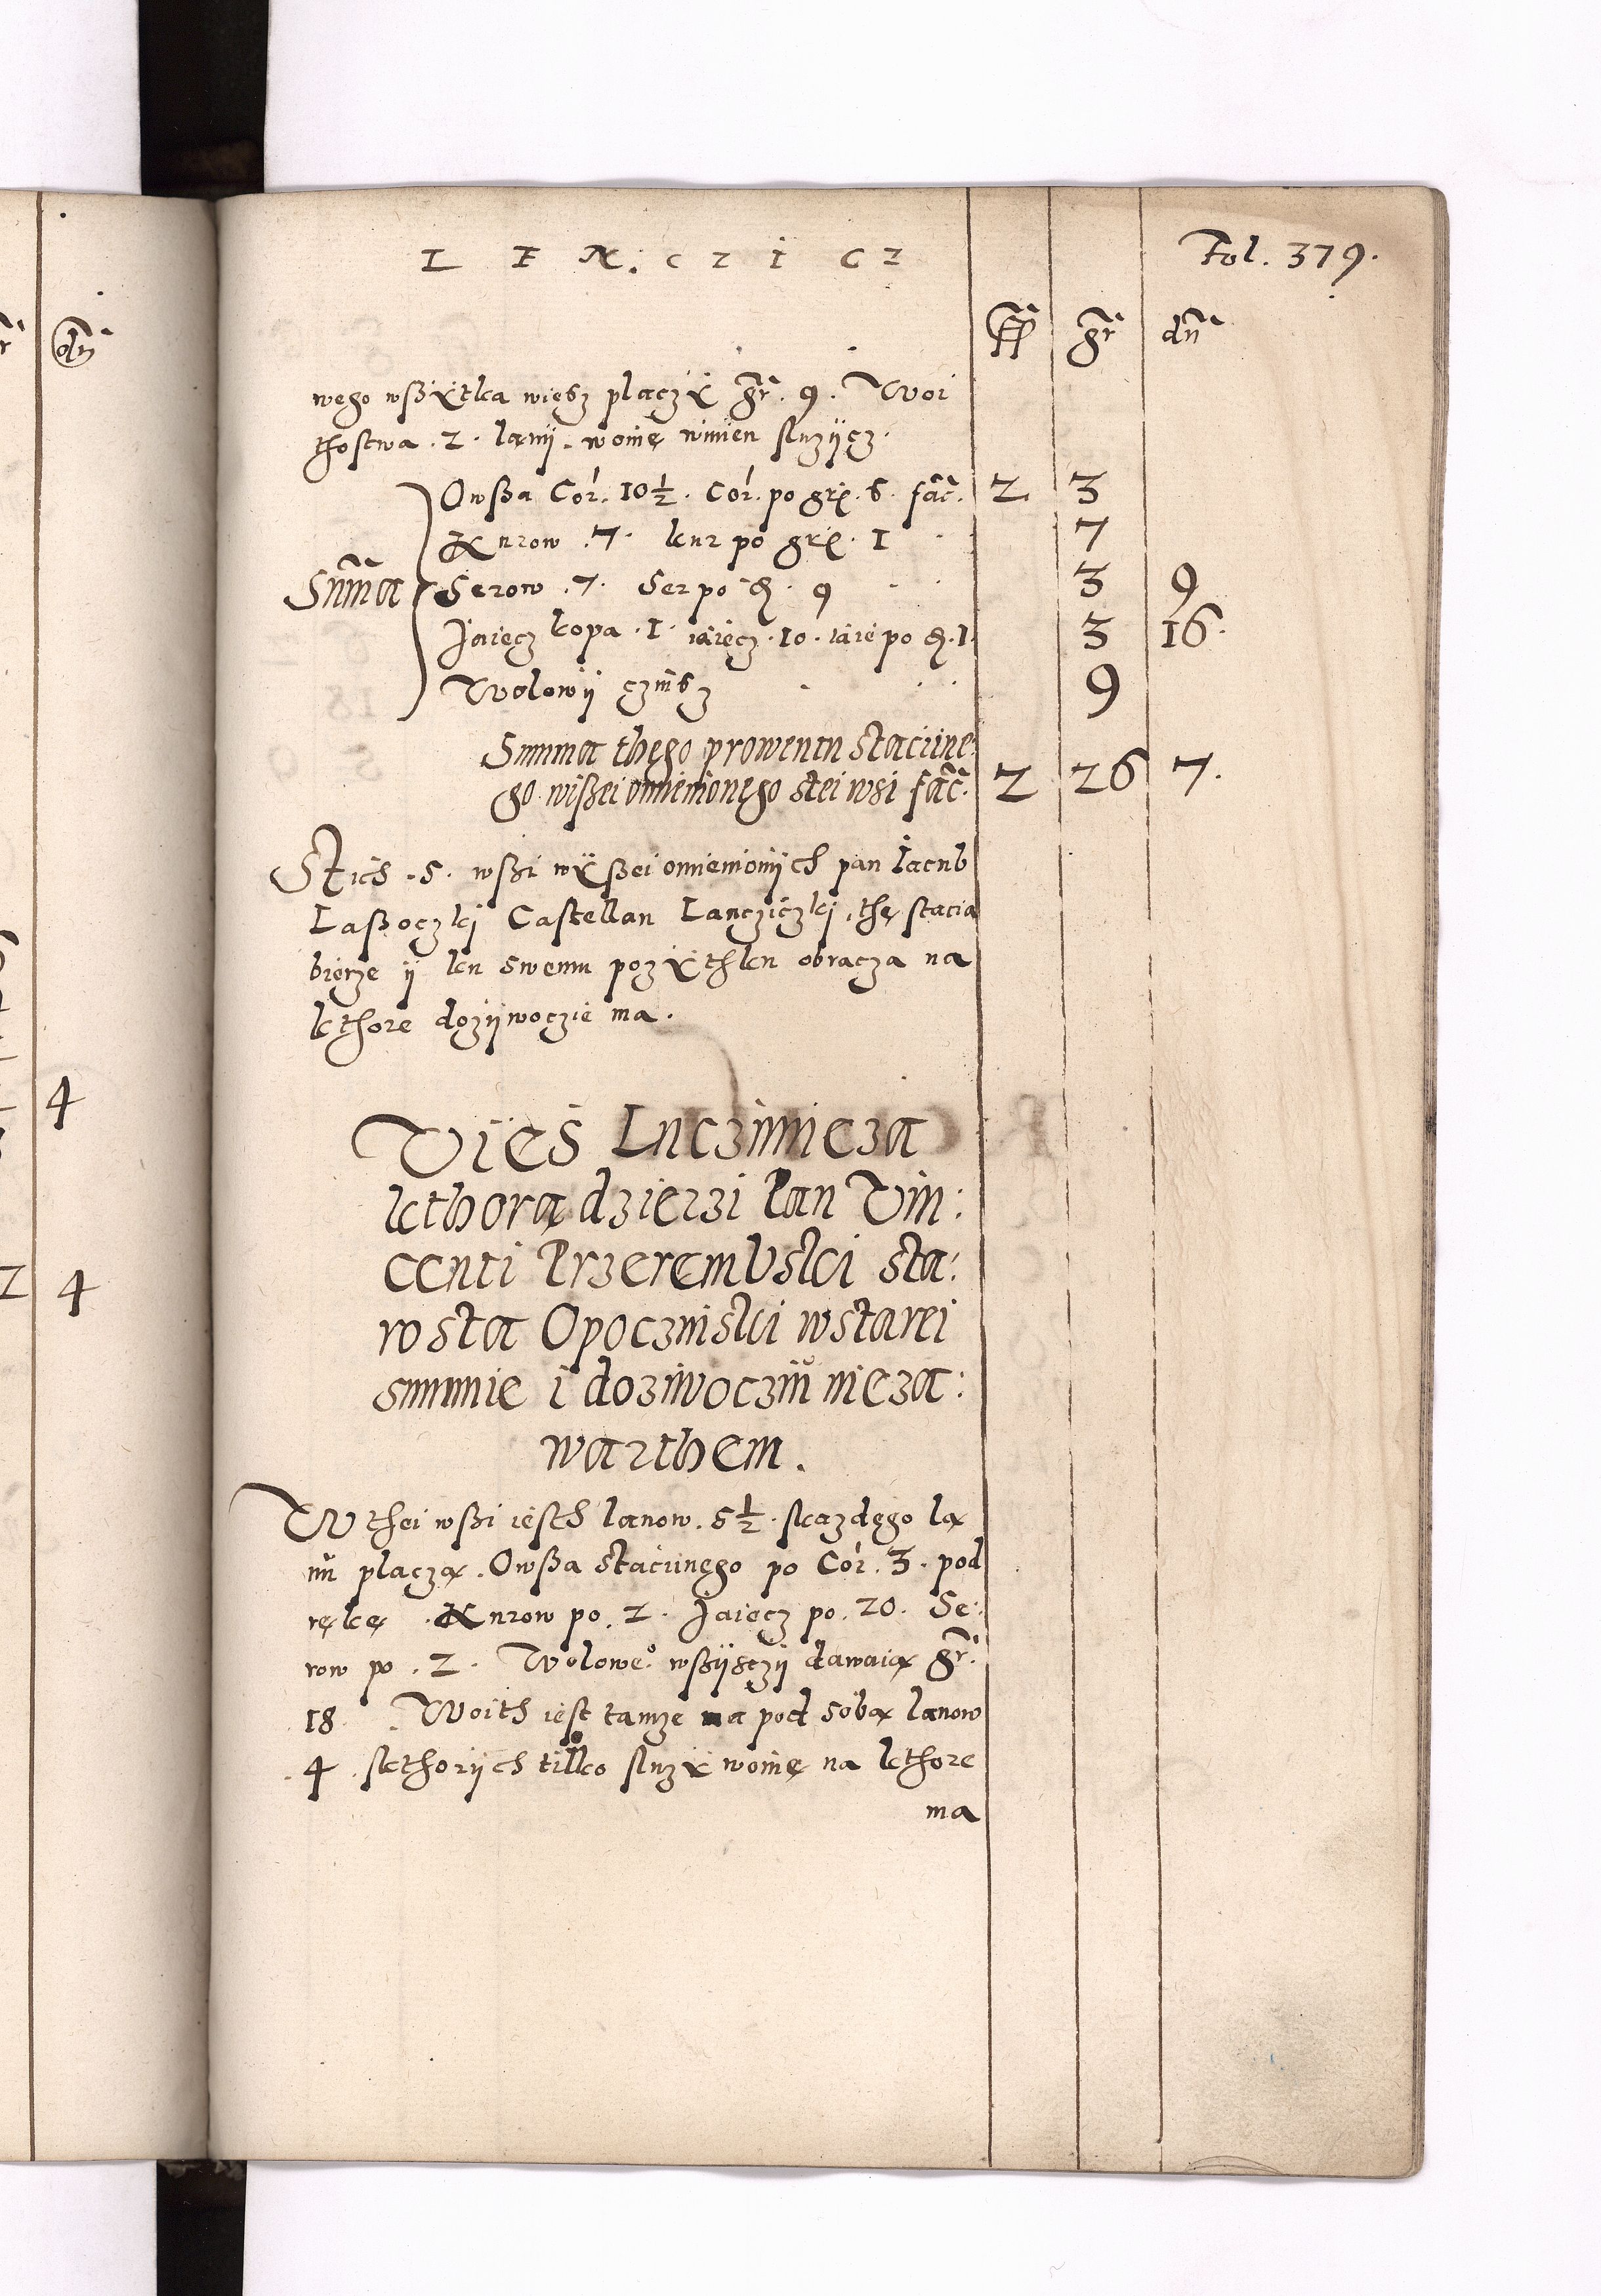 LENCZICZ
Fol. 379.
gr dn
wego wßÿtka wiesz płaczÿ gr. 9. Woi
thostwa .2. lanij. woinę winien sluzijcz.
Owßa Cor. 10½. Cor. po gr. 6. fac. 2 3
Kurow .7. kur po gr. 1 7
Summa Serow .7. Ser po d. 9 3 9
Jaiecz kopa .1. iaiecz .10. iaie po d. 1. 3 16.
Wolowij czinsz 9
Summa thego prowentu staciine
go wißei omienionego stei wsi fac. 2 26 7.
Stich .5. wßi wÿßei omienionijch pan Jacub
Laßoczkj Castellan Lanczickj, thę stacia
bierze ij ku swemu pozÿthku obracza na
kthore dozijwoczie ma.
Vies Luczimieza
kthorą dzierzi Pan Vin:
centi Przerembski sta:
rosta Opoczinski wstarei
summie i doziwocziu nieza:
warthem.
W thei wßi iesth lanow. 5½. skazdego la
nu placzą. Owßa staciinego po Cor. 3. pod
rękę. Kurow po. 2. Jaiecz po. 20. Se:
row po .2. Wolowe° wßijsczij dawaią gr.
18. Woith iest tamze ma pod sobą lanow
4. skthorijch tilko sluzÿ woinę na kthore
ma
4
2 4